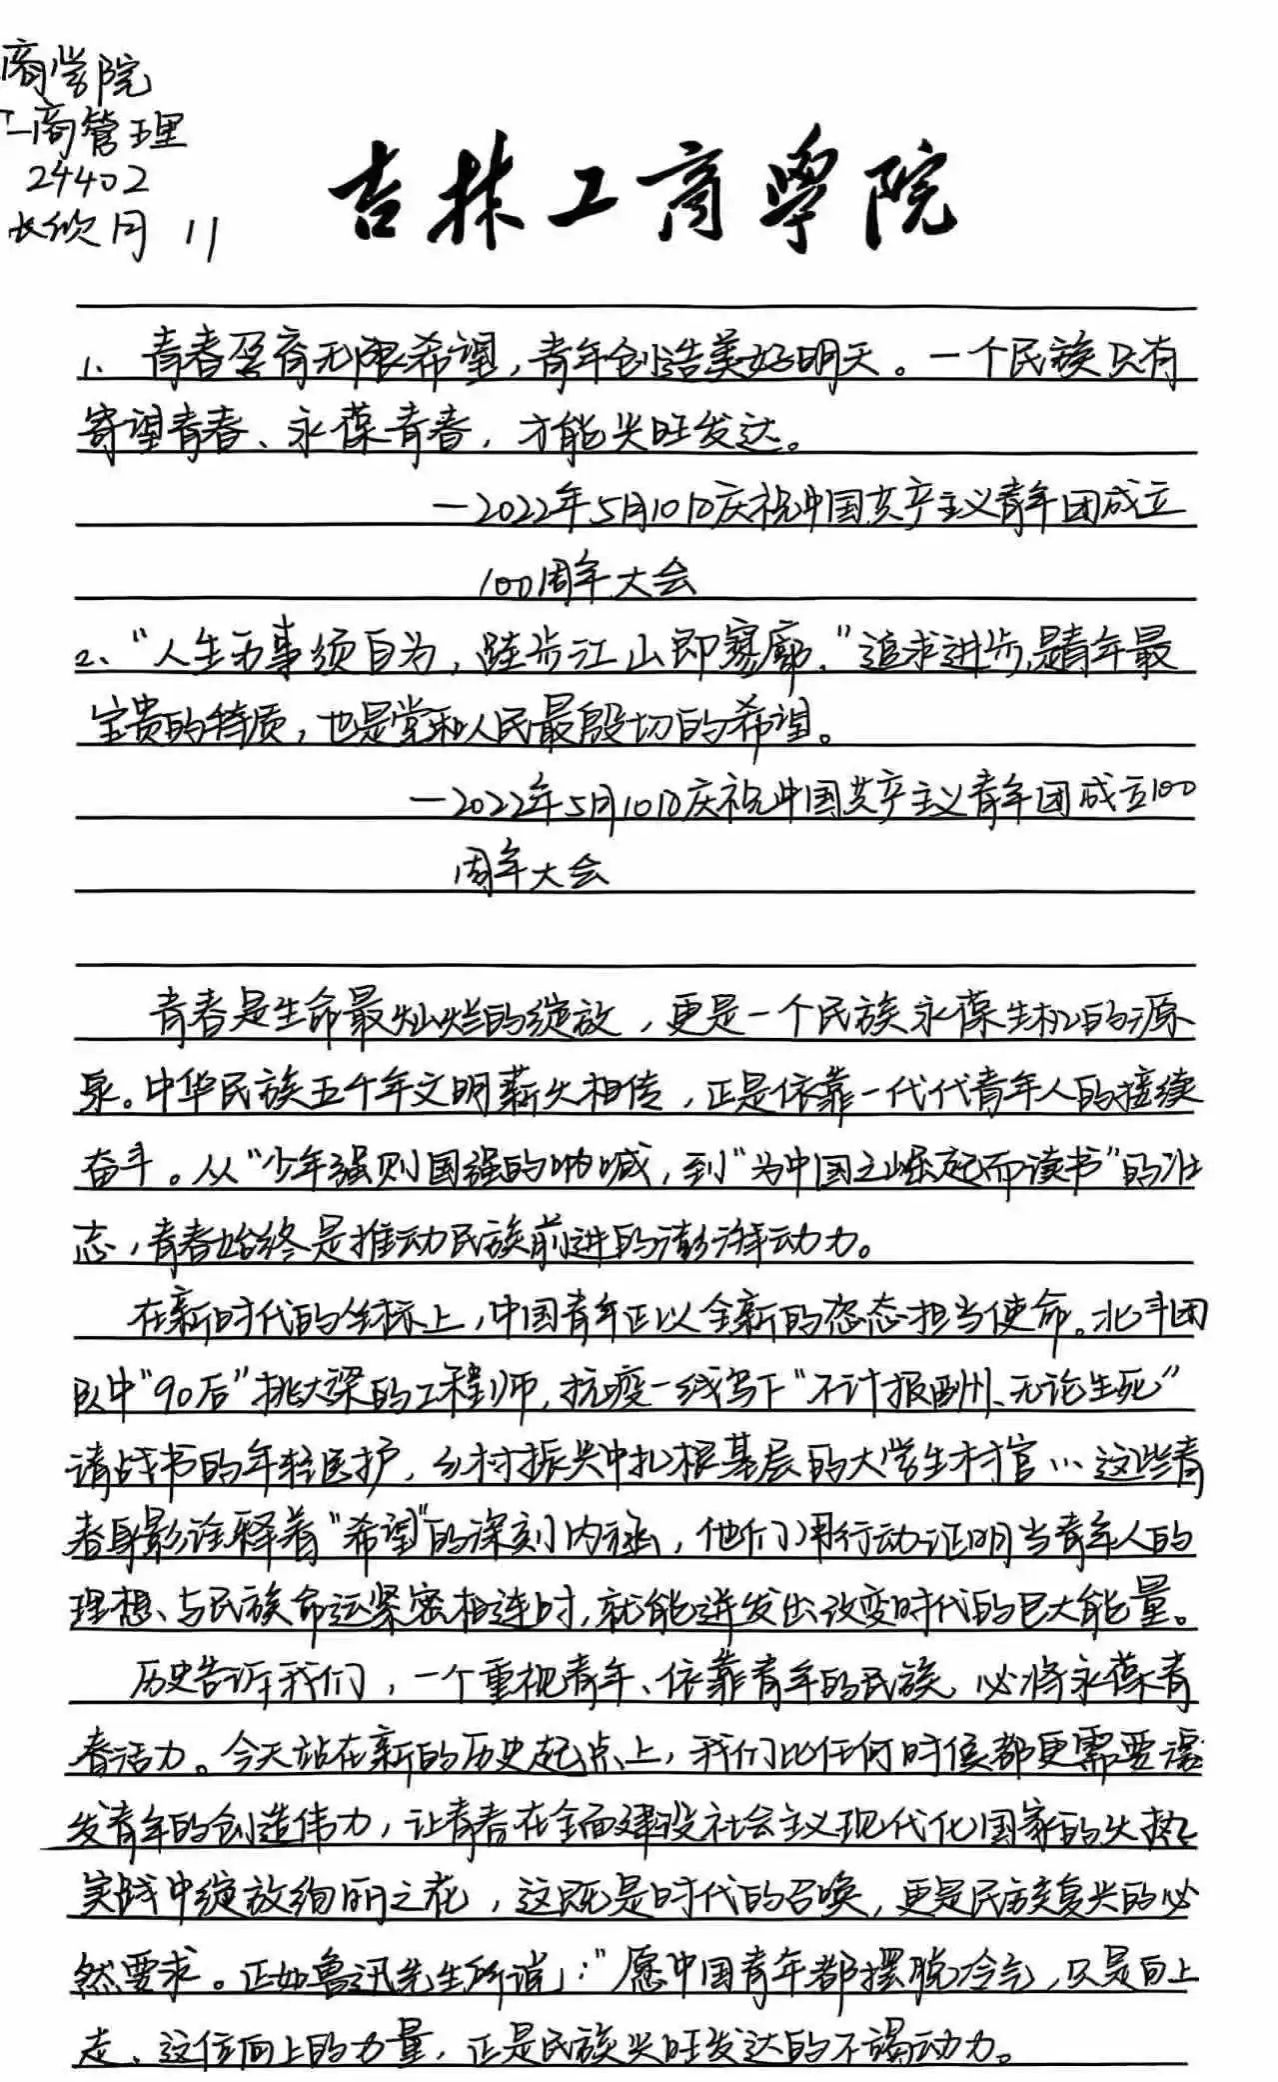 商学院
工商管理
24402
欣月 11
吉林工商學院
1、青春孕育无限希望，青年创造美好明天。一个民族只有
寄望青春、永葆青春，才能兴旺发达。
—2022年5月10日庆祝中国共产主义青年团成立
100周年大会
2、“人生万事须自为，跬步江山即寥廓。”追求进步，是青年最
宝贵的特质，也是党和人民最殷切的希望。
—2022年5月10日庆祝中国共产主义青年团成立100
周年大会
青春是生命最灿烂的绽放，更是一个民族永葆生机的源
泉。中华民族五千年文明薪火相传，正是依靠一代代青年人的接续
奋斗。从“少年强则国强的呐喊，到“为中国之崛起而读书”的壮
志，青春始终是推动民族前进的澎湃动力。
在新时代的坐标上，中国青年正以全新的姿态担当使命。北斗团
队中“90后”挑大梁的工程师，抗疫一线写下“不计报酬、无论生死”
请战书的年轻医护，乡村振兴中扎根基层的大学生村官…这些青
春身影诠释着“希望”的深刻内涵，他们用行动证明当青年人的
理想、与民族命运紧密相连时，就能迸发出改变时代的巨大能量。
历史告诉我们，一个重视青年、依靠青年的民族 必将永葆青
春活力。今天站在新的历史起点上，我们比任何时候都更需要激
发青年的创造伟力，让青春在全面建设社会主义现代化国家的火热
实践中绽放绚丽之花，这既是时代的召唤，更是民族复兴的必
然要求。正如鲁迅先生所说：“愿中国青年都摆脱冷气，只是向上
走、这位向上的力量，正是民族兴旺发达的不竭动力。